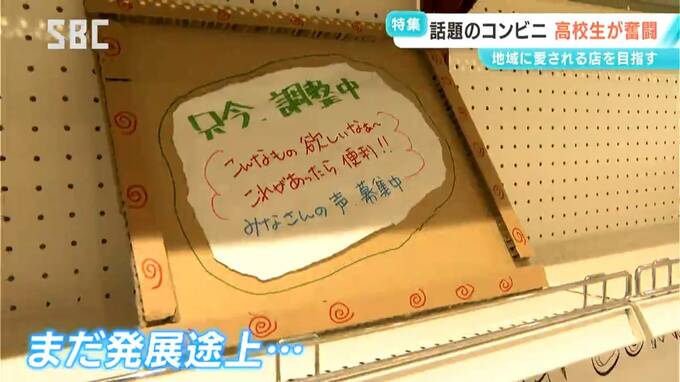 SBC
特集 話題のコンビニ 高校生が奮闘
地域に愛される店を目指す
只今 調整中
こんなもの欲しいなぁ～
これがあったら便利!!
みなさんの声 募集中
まだ発展途上…